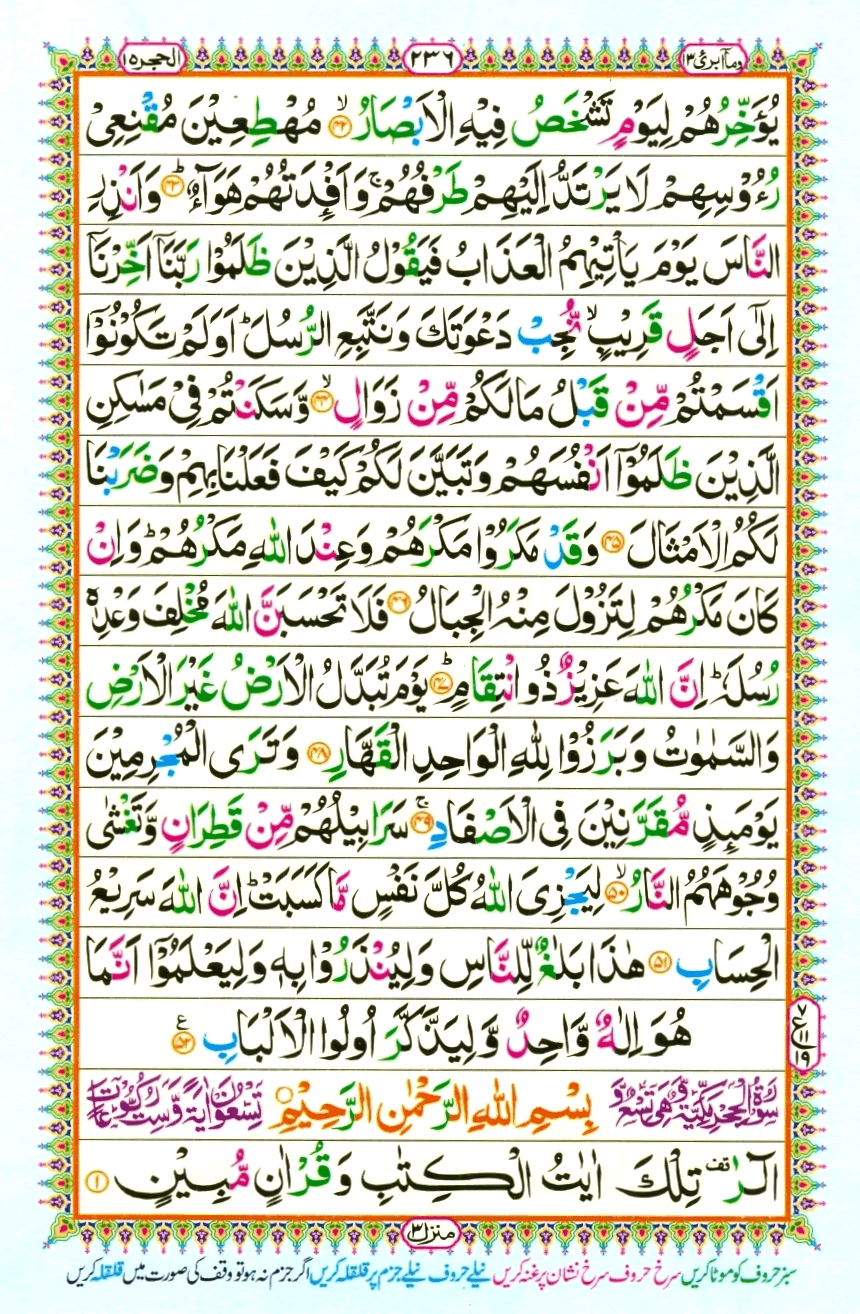 وما ابرئ ١٣
٢٣٦
الحجر ١٥
يُؤَخِّرُهُمْ لِيَوْمٍ تَشْخَصُ فِيْهِ الْاَبْصَارُۙ‏﴿۴۲﴾ مُهْطِعِيْنَ مُقْنِعِىْ
رُءُوْسِهِمْ لَا يَرْتَدُّ اِلَيْهِمْ طَرْفُهُمْۚ وَاَفْـِٕدَتُهُمْ هَوَآءٌؕ‏﴿۴۳﴾ وَاَنْذِرِ
النَّاسَ يَوْمَ يَاْتِيْهِمُ الْعَذَابُ فَيَقُوْلُ الَّذِيْنَ ظَلَمُوْا رَبَّنَاۤ اَخِّرْنَاۤ
اِلٰٓى اَجَلٍ قَرِيْبٍۙ نُّجِبْ دَعْوَتَكَ وَنَتَّبِعِ الرُّسُلَؕ اَوَلَمْ تَكُوْنُوْۤا
اَقْسَمْتُمْ مِّنْ قَبْلُ مَا لَكُمْ مِّنْ زَوَالٍۙ‏﴿۴۴﴾ وَّسَكَنْتُمْ فِىْ مَسٰكِنِ
الَّذِيْنَ ظَلَمُوْۤا اَنْفُسَهُمْ وَتَبَيَّنَ لَكُمْ كَيْفَ فَعَلْنَا بِهِمْ وَضَرَبْنَا
لَكُمُ الْاَمْثَالَ‏﴿۴۵﴾ وَقَدْ مَكَرُوْا مَكْرَهُمْ وَعِنْدَ اللّٰهِ مَكْرُهُمْؕ وَاِنْ
كَانَ مَكْرُهُمْ لِتَزُوْلَ مِنْهُ الْجِبَالُ‏﴿۴۶﴾ فَلَا تَحْسَبَنَّ اللّٰهَ مُخْلِفَ وَعْدِهٖ
رُسُلَهٗؕ اِنَّ اللّٰهَ عَزِيْزٌ ذُو انْتِقَامٍؕ‏﴿۴۷﴾ يَوْمَ تُبَدَّلُ الْاَرْضُ غَيْرَ الْاَرْضِ
وَالسَّمٰوٰتُ وَبَرَزُوْا لِلّٰهِ الْوَاحِدِ الْقَهَّارِ‏﴿۴۸﴾ وَتَرَى الْمُجْرِمِيْنَ
يَوْمَىِٕذٍ مُّقَرَّنِيْنَ فِى الْاَصْفَادِۚ‏﴿۴۹﴾ سَرَابِيْلُهُمْ مِّنْ قَطِرَانٍ وَّتَغْشٰى
وُجُوْهَهُمُ النَّارُۙ‏﴿۵۰﴾ لِيَجْزِىَ اللّٰهُ كُلَّ نَفْسٍ مَّا كَسَبَتْؕ اِنَّ اللّٰهَ سَرِيْعُ
الْحِسَابِ‏﴿۵۱﴾ هٰذَا بَلٰغٌ لِّلنَّاسِ وَلِيُنْذَرُوْا بِهٖ وَلِيَعْلَمُوْۤا اَنَّمَا
هُوَ اِلٰهٌ وَّاحِدٌ وَّلِيَذَّكَّرَ اُولُوا الْاَلْبَابِ‏﴿۵۲﴾ ع
٧ ع ١١ ١٩
سُوْرَةُ الْحِجْرِ مَكِّيَّةٌ وَّهِىَ تِسْعٌ وَّ بِسْمِ اللّٰهِ الرَّحْمٰنِ الرَّحِيْمِ تِسْعُوْنَ اٰيَةً وَّسِتُّ رُكُوْعَاتٍ
الٓرٰ قف تِلْكَ اٰيٰتُ الْكِتٰبِ وَقُرْاٰنٍ مُّبِيْنٍ‏﴿۱﴾
منزل ٣
سبز حروف کو موٹا کریں سرخ حروف سرخ نشان پر غنہ کریں نیلے حروف نیلے جزم پر قلقلہ کریں اگر جزم نہ ہو تو وقف کی صورت میں قلقلہ کریں